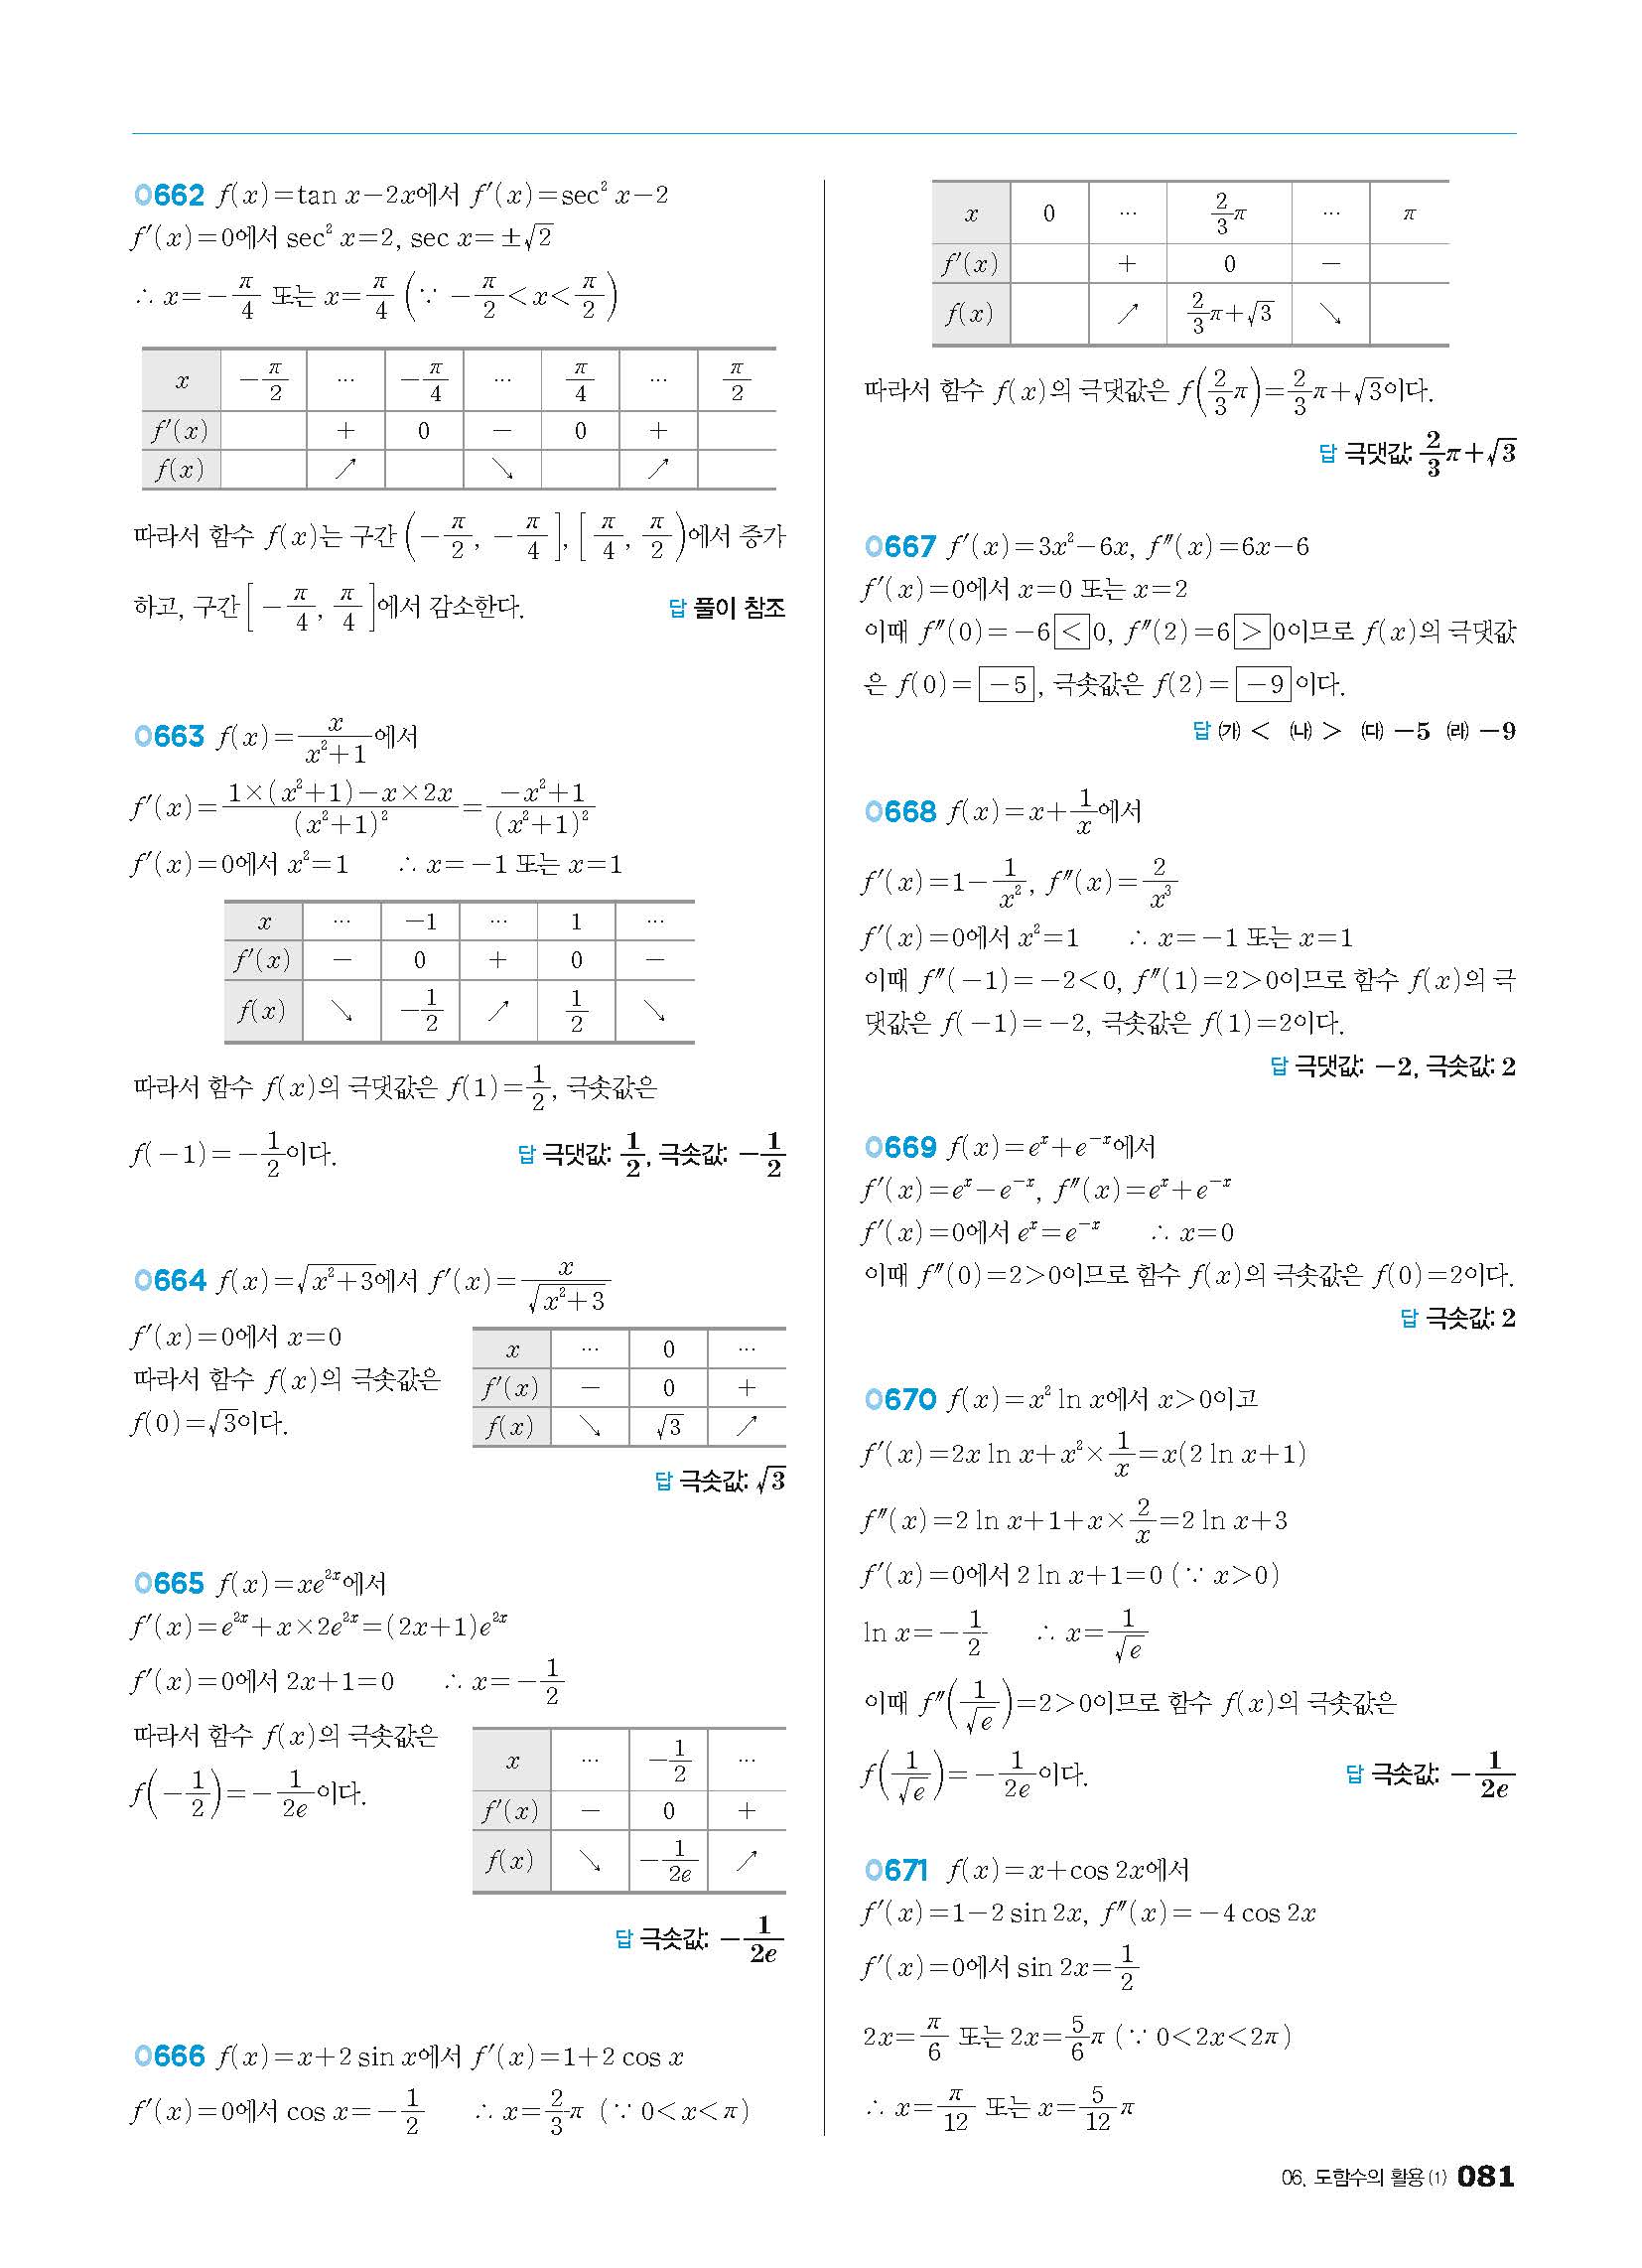 0662 f(x)=tan x-2x에서 f′(x)=sec² x-2
f′(x)=0에서 sec² x=2, sec x=±√2
∴ x=-π/4 또는 x=π/4 (∵ -π/2<x<π/2)
x | -π/2 | … | -π/4 | … | π/4 | … | π/2
f′(x) | | + | 0 | - | 0 | + |
f(x) | | ↗ | | ↘ | | ↗ |
따라서 함수 f(x)는 구간 (-π/2, -π/4], [π/4, π/2)에서 증가
하고, 구간 [-π/4, π/4]에서 감소한다. 답 풀이 참조
0663 f(x)=x/(x²+1)에서
f′(x)={1×(x²+1)-x×2x}/(x²+1)²=(-x²+1)/(x²+1)²
f′(x)=0에서 x²=1 ∴ x=-1 또는 x=1
x | … | -1 | … | 1 | …
f′(x) | - | 0 | + | 0 | -
f(x) | ↘ | -1/2 | ↗ | 1/2 | ↘
따라서 함수 f(x)의 극댓값은 f(1)=1/2, 극솟값은
f(-1)=-1/2이다. 답 극댓값: 1/2, 극솟값: -1/2
0664 f(x)=√(x²+3)에서 f′(x)=x/√(x²+3)
f′(x)=0에서 x=0
따라서 함수 f(x)의 극솟값은
f(0)=√3이다.
x | … | 0 | …
f′(x) | - | 0 | +
f(x) | ↘ | √3 | ↗
답 극솟값: √3
0665 f(x)=xe²ˣ에서
f′(x)=e²ˣ+x×2e²ˣ=(2x+1)e²ˣ
f′(x)=0에서 2x+1=0 ∴ x=-1/2
따라서 함수 f(x)의 극솟값은
f(-1/2)=-1/2e이다.
x | … | -1/2 | …
f′(x) | - | 0 | +
f(x) | ↘ | -1/2e | ↗
답 극솟값: -1/2e
0666 f(x)=x+2 sin x에서 f′(x)=1+2 cos x
f′(x)=0에서 cos x=-1/2 ∴ x=2/3π (∵ 0<x<π)
x | 0 | … | 2/3π | … | π
f′(x) | | + | 0 | - |
f(x) | | ↗ | 2/3π+√3 | ↘ |
따라서 함수 f(x)의 극댓값은 f(2/3π)=2/3π+√3이다.
답 극댓값: 2/3π+√3
0667 f′(x)=3x²-6x, f″(x)=6x-6
f′(x)=0에서 x=0 또는 x=2
이때 f″(0)=-6 < 0, f″(2)=6 > 0이므로 f(x)의 극댓값
은 f(0)= -5 , 극솟값은 f(2)= -9 이다.
답 ㈎ < ㈏ > ㈐ -5 ㈑ -9
0668 f(x)=x+1/x에서
f′(x)=1-1/x², f″(x)=2/x³
f′(x)=0에서 x²=1 ∴ x=-1 또는 x=1
이때 f″(-1)=-2<0, f″(1)=2>0이므로 함수 f(x)의 극
댓값은 f(-1)=-2, 극솟값은 f(1)=2이다.
답 극댓값: -2, 극솟값: 2
0669 f(x)=eˣ+e⁻ˣ에서
f′(x)=eˣ-e⁻ˣ, f″(x)=eˣ+e⁻ˣ
f′(x)=0에서 eˣ=e⁻ˣ ∴ x=0
이때 f″(0)=2>0이므로 함수 f(x)의 극솟값은 f(0)=2이다.
답 극솟값: 2
0670 f(x)=x² ln x에서 x>0이고
f′(x)=2x ln x+x²×1/x=x(2 ln x+1)
f″(x)=2 ln x+1+x×2/x=2 ln x+3
f′(x)=0에서 2 ln x+1=0 (∵ x>0)
ln x=-1/2 ∴ x=1/√e
이때 f″(1/√e)=2>0이므로 함수 f(x)의 극솟값은
f(1/√e)=-1/2e이다. 답 극솟값: -1/2e
0671 f(x)=x+cos 2x에서
f′(x)=1-2 sin 2x, f″(x)=-4 cos 2x
f′(x)=0에서 sin 2x=1/2
2x=π/6 또는 2x=5/6π (∵ 0<2x<2π)
∴ x=π/12 또는 x=5/12π
06. 도함수의 활용 ⑴ 081